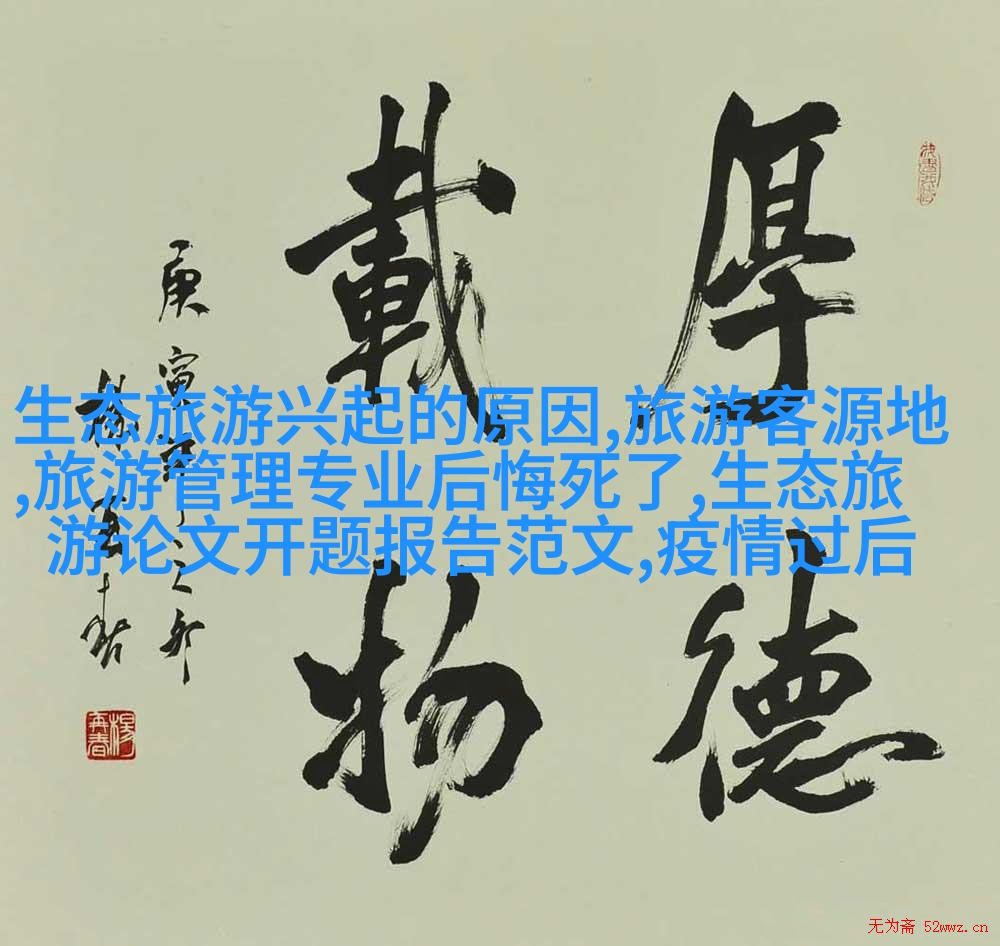 厚德
載物
庚寅
楊再春
生态旅游兴起的原因,旅游客源地
,旅游管理专业后悔死了,生态旅
游论文开题报告范文,疫情过后
楊再春
无为斋 52wwz.cn